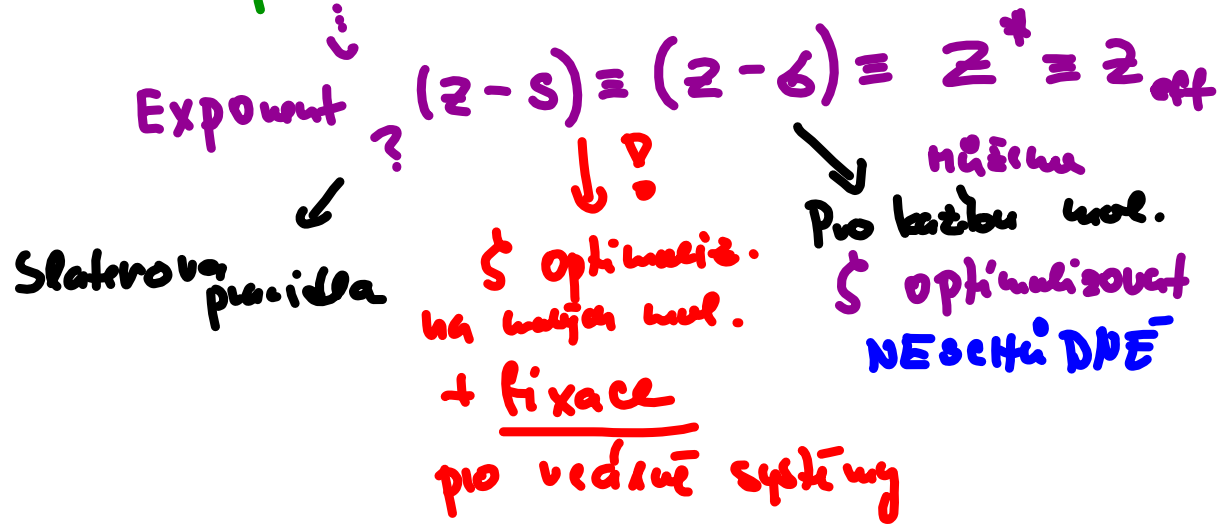 Exponent ? (z - s) ≡ (z - σ) ≡ Z* ≡ Z eff
Slaterova
pravidla
ζ optimaliz.
na malých mol.
+ fixace
pro systémy
můžeme
Pro každou mol.
ζ optimalizovat